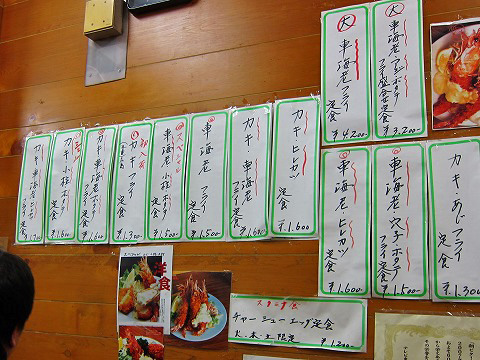 大
車海老フライ
定食
¥4,200-
大
車海老
フライ盛合せ定食
¥3,200-
カキ・あじフライ
定食
¥1,300
車海老
穴子ホタテ
フライ定食
¥1,500
車海老ヒレカツ
定食
¥1,600-
カキヒレカツ
定食
¥1,600
カキ車海老
フライ定食
¥1,600
車海老フライ
定食
¥1,500
スペシャル
車海老小柱
フライ定食
¥1,500
カキフライ
定食
¥1,300
カキ車海老ホタテ
フライ定食
¥1,600
カキ小柱ホタテ
フライ定食
カキ車海老ヒレ
フライ定食
洋食
スタミナ食
チャーシューエッグ定食
火、木、土限定
¥1,200-